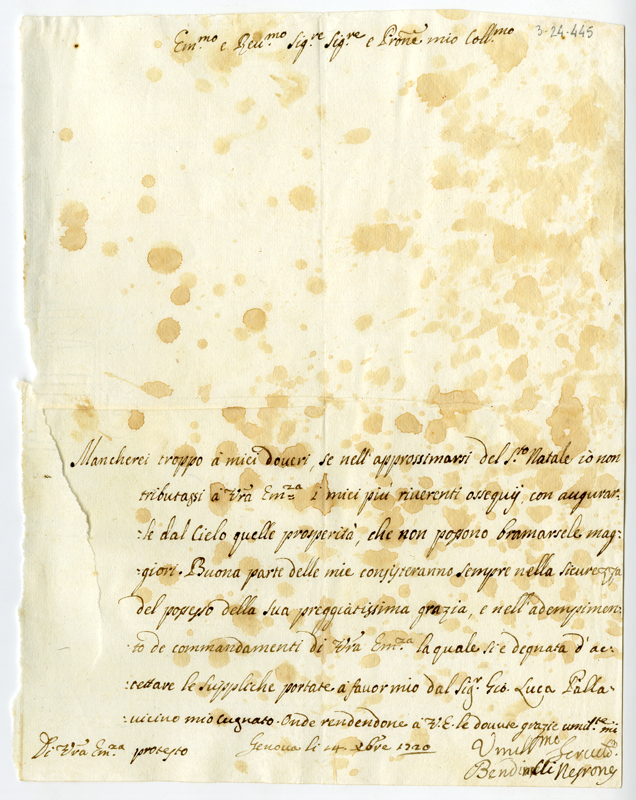 3-24-445
Em.mo e Reu.mo Sig.re Sig.re e Prone mio Coll.mo
Mancherei troppo à miei doueri, se nell'approssimarsi del S.to Natale io non
tributassi à Vrã Em.za i miei più riuerenti ossequij, con augurar-
:le dal Cielo quelle prosperità, che non possono bramarsele mag-
:giori. Buona parte delle mie consisteranno sempre nella sicurezza
del possesso della sua preggiatissima grazia, e nell'adempimen:
:to de commandamenti di Vrã Em.za la quale si è degnata d'ac-
:cettare le suppliche portate à fauor mio dal Sig.r Gio. Luca Palla-
:uicino mio cugnato. Onde rendendone à V.E. le douute grazie umil.te mi
Di Vrã Em.za protesto Genoua li 14 Xbre 1720
Umil.mo Seruid.
Bendinelli Negrone